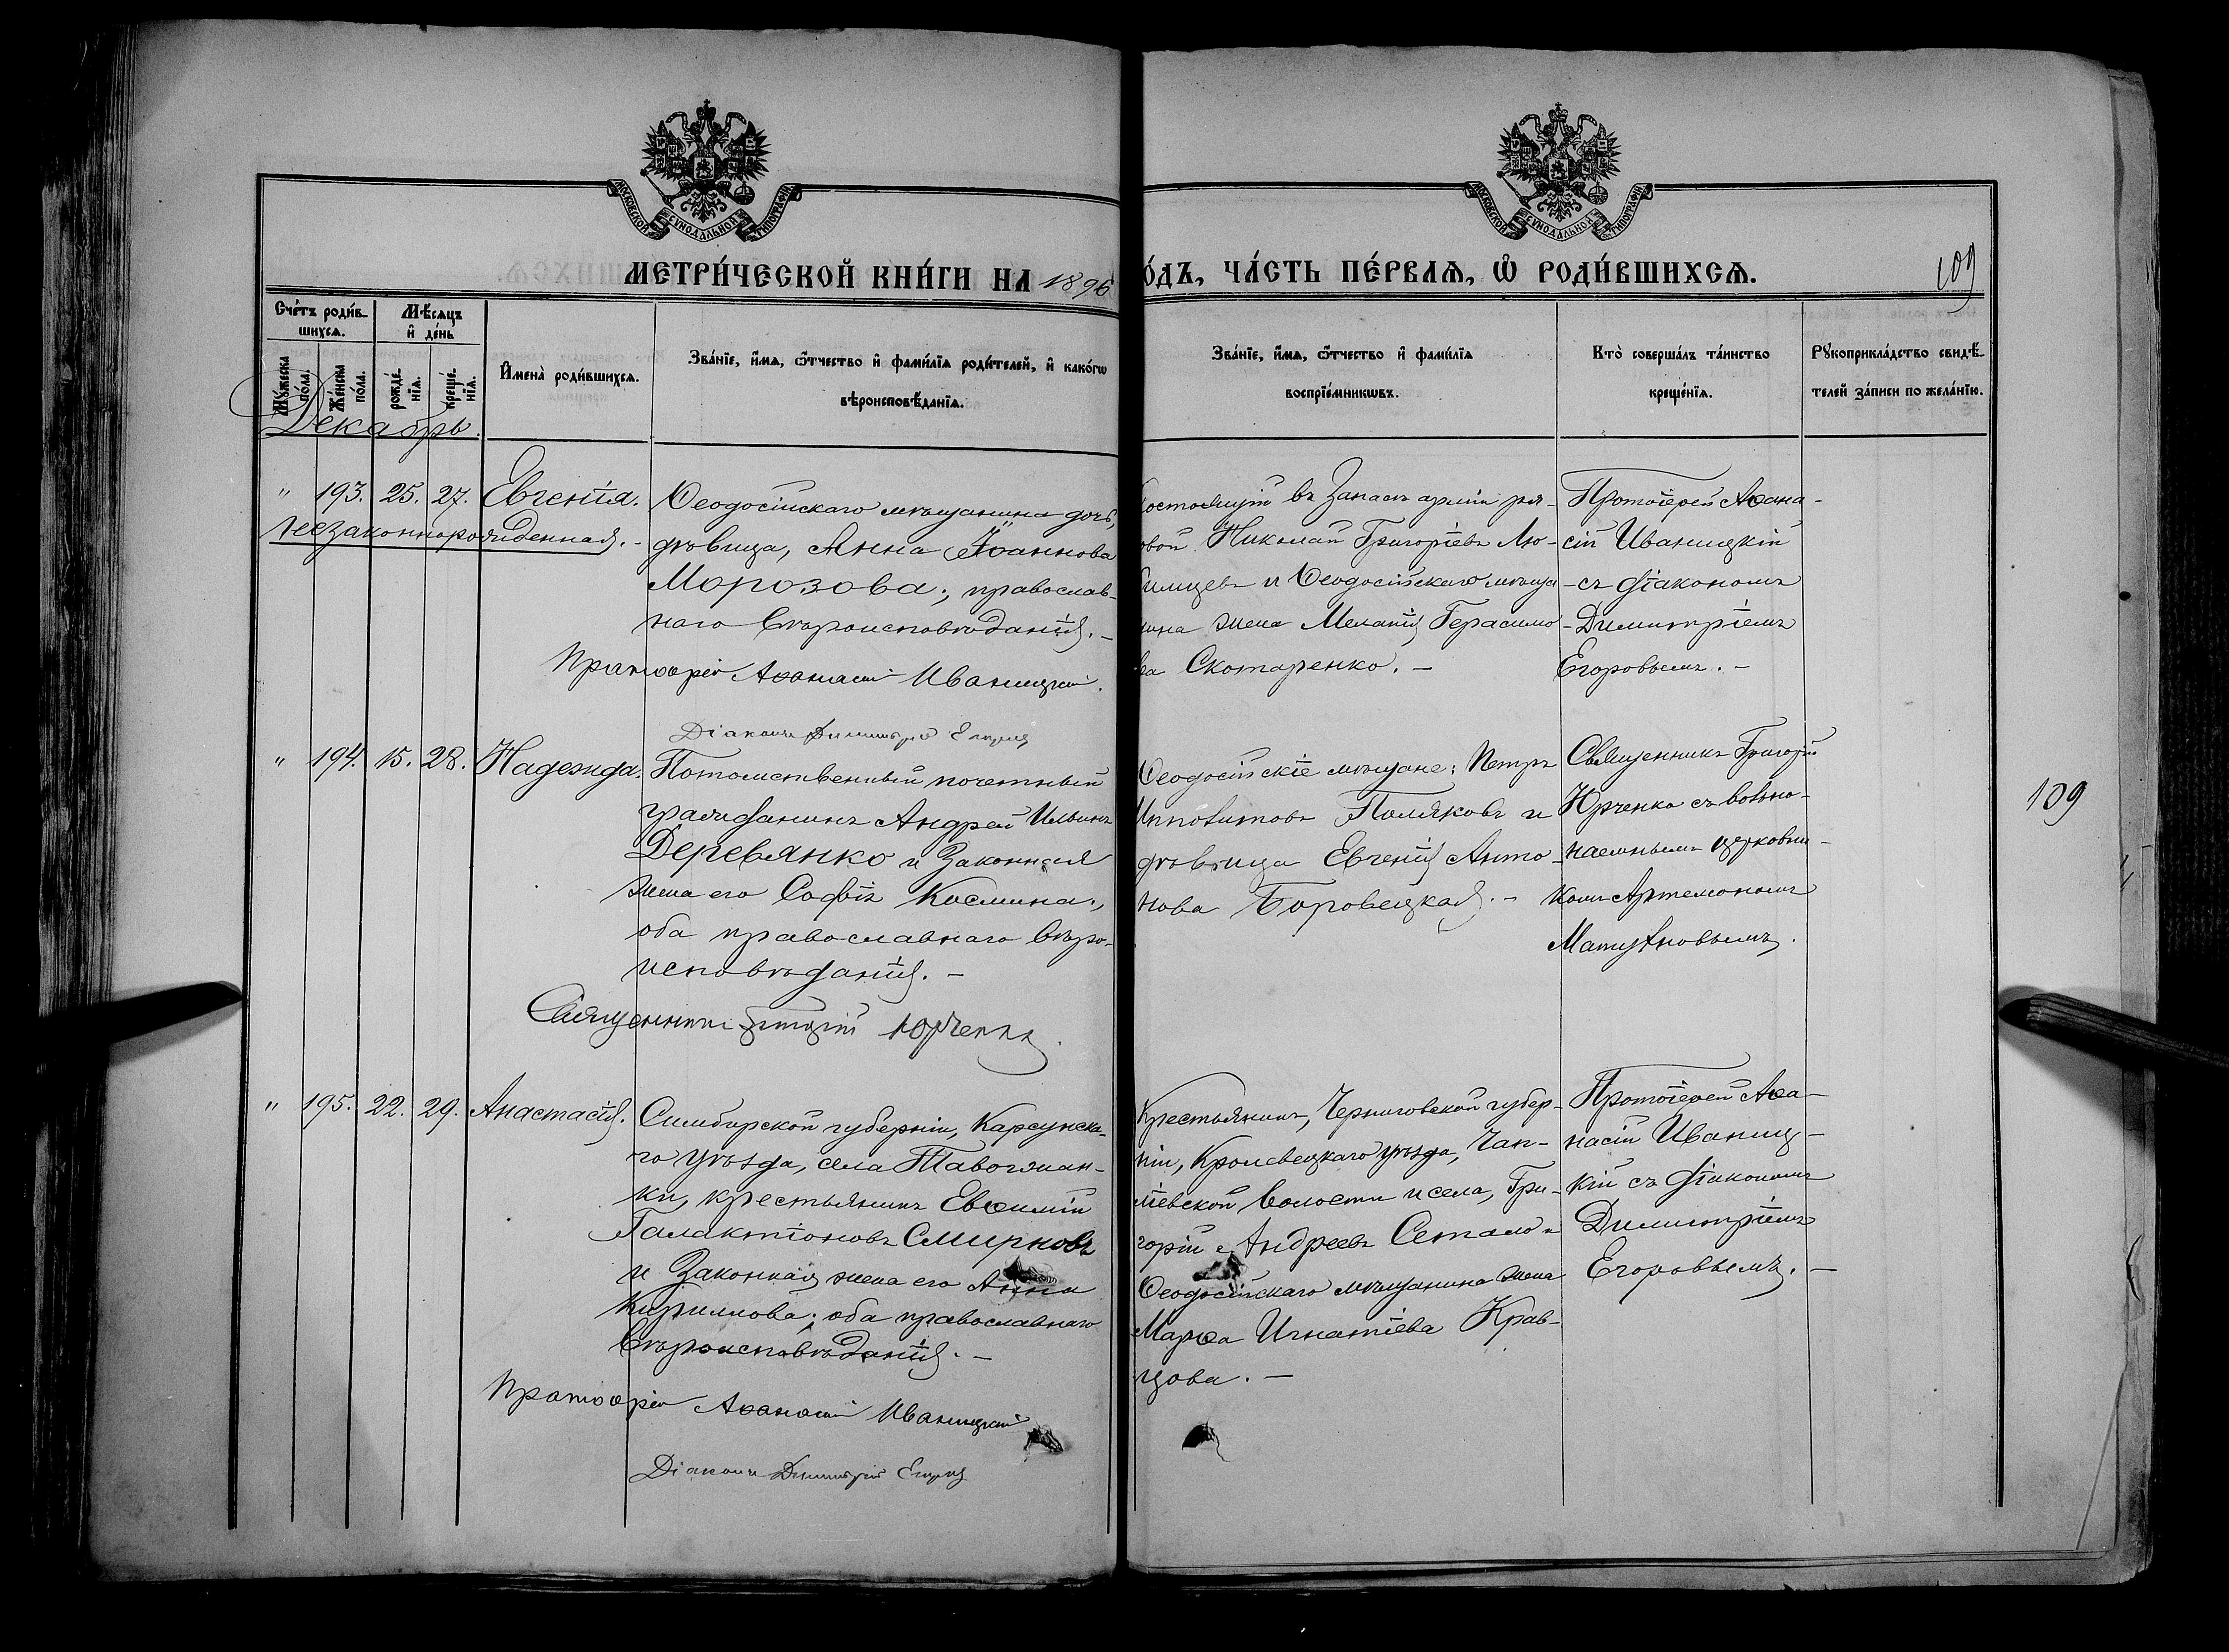 МОСКОВСКОЙ СѴНОДАЛЬНОЙ ТИПОГРАФІИ
МОСКОВСКОЙ СѴНОДАЛЬНОЙ ТИПОГРАФІИ
МЕТРИ́ЧЕСКОЙ КНИ́ГИ НА 1896
О́ДЪ, ЧА́СТЬ ПЕ́РВАѦ, Ѡ҆ РОДИ́ВШИХСѦ.
109
Сче́тъ роди́в-
шихсѧ.
Мѣ́сѧцъ
и҆ де́нь
Мꙋ́жеска
по́ла.
Же́нска
по́ла.
рожде́-
нїѧ.
креще́-
нїѧ.
И҆мена̀ роди́вшихсѧ.
Зва́нїе, и҆́мѧ, ѻ҆́тчество и҆ фами́лїѧ роди́телей, и҆ како́гѡ
вѣроисповѣ́данїѧ.
Зва́нїе, и҆́мѧ, ѻ҆́тчество и҆ фами́лїѧ
воспрїе́мникѡвъ.
Кто̀ соверша́лъ та́инство
креще́нїѧ.
Рꙋкоприкла́дство свидѣ́-
телей за́писи по жела́нїю.
Декабрь.
" 193. 25. 27. Евгенія.
незаконнорожденная. -
Ѳеодосійскаго мѣщанина дочь,
дѣвица, Анна Іоаннова
Морозова; православ-
наго вѣроисповѣданія. -
Протоіерей Аѳанасій Иваницкій.
Діаконъ Димитрій Егоровъ
Состоящій въ запасѣ арміи ря-
довой Николай Григорьевъ Лю-
бимцевъ и Ѳеодосійскаго мѣща
нина жена Меланія Герасимо
ва Скотаренко. -
Протоіерей Аѳана-
сій Иваницкій
съ діакономъ
Димитріемъ
Егоровымъ. -
" 194. 15. 28. Надежда.
Потомственный почетный
гражданинъ Андрей Ильинъ
Деревянко и законная
жена его Софія Космина,
оба православнаго вѣро-
исповѣданія. -
Священникъ Григорій Юрченко.
Ѳеодосійскіе мѣщане: Петръ
Ипполитовъ Поляковъ и
дѣвица Евгенія Анто-
нова Боровецкая. -
Священникъ Григорій
Юрченко съ вольно-
наемнымъ церковни-
комъ Артемономъ
109
" 195. 22. 29. Анастасія.
Симбирской губерніи, Карсунска-
го уѣзда, села Таволжан-
ки, крестьянинъ Евѳимій
Галактіоновъ Смирновъ
и законная жена его Анна
Кириллова; оба православнаго
вѣроисповѣданія. -
Протоіерей Аѳанасій Иваницкій
Діаконъ Димитрій Егоровъ
Крестьянинъ, Черниговской губер-
ніи, Кролевецкаго уѣзда, Чап-
лѣевской волости и села, Гри-
горій Андреевъ Сетало и
Ѳеодосійскаго мѣщанина жена
Марѳа Игнатіева Крав-
цова. -
Протоіерей Аѳа-
насій Иваниц-
кій съ діакономъ
Димитріемъ
Егоровымъ. -